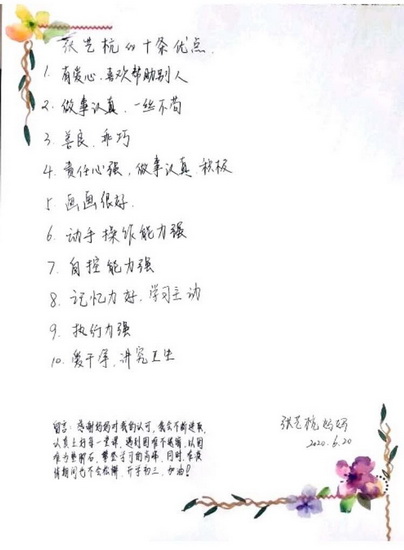 张艺杭的十条优点.
1. 有爱心、喜欢帮助别人
2. 做事认真、一丝不苟
3. 善良、乖巧
4. 责任心强, 做事认真、积极
5. 画画很好.
6. 动手操作能力强
7. 自控能力强
8. 记忆力好, 学习主动
9. 执行力强
10. 爱干净, 讲究卫生
张艺杭妈妈
2020.6.20
留言: 感谢妈妈对我的认可, 我会不断进取,
认真上好每一堂课, 遇到困难不退缩, 以困
难为垫脚石, 攀登学习的高峰. 同时, 在疫
情期间也不会松懈, 开学初三, 加油!